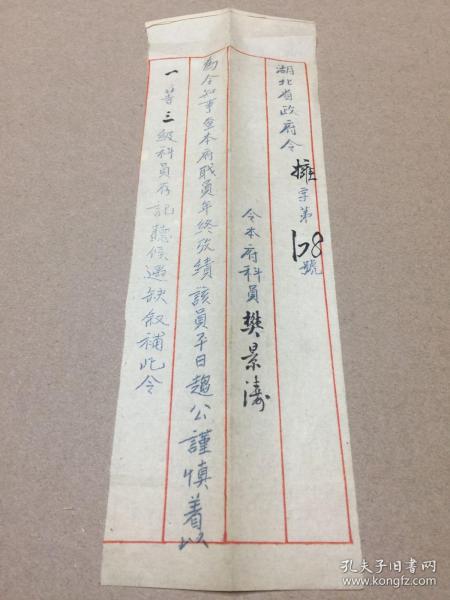 湖北省政府令 擁字第128號
令本府科員樊景濤
為令知事查本府職員年終攷績該員平日趨公謹慎着以
一等三級科員存記聽候遇缺敘補此令
孔夫子旧书网
www.kongfz.com